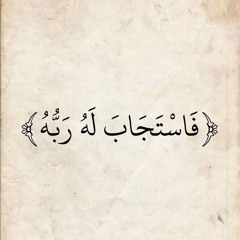 ﴿ فَاسْتَجَابَ لَهُ رَبُّهُ ﴾